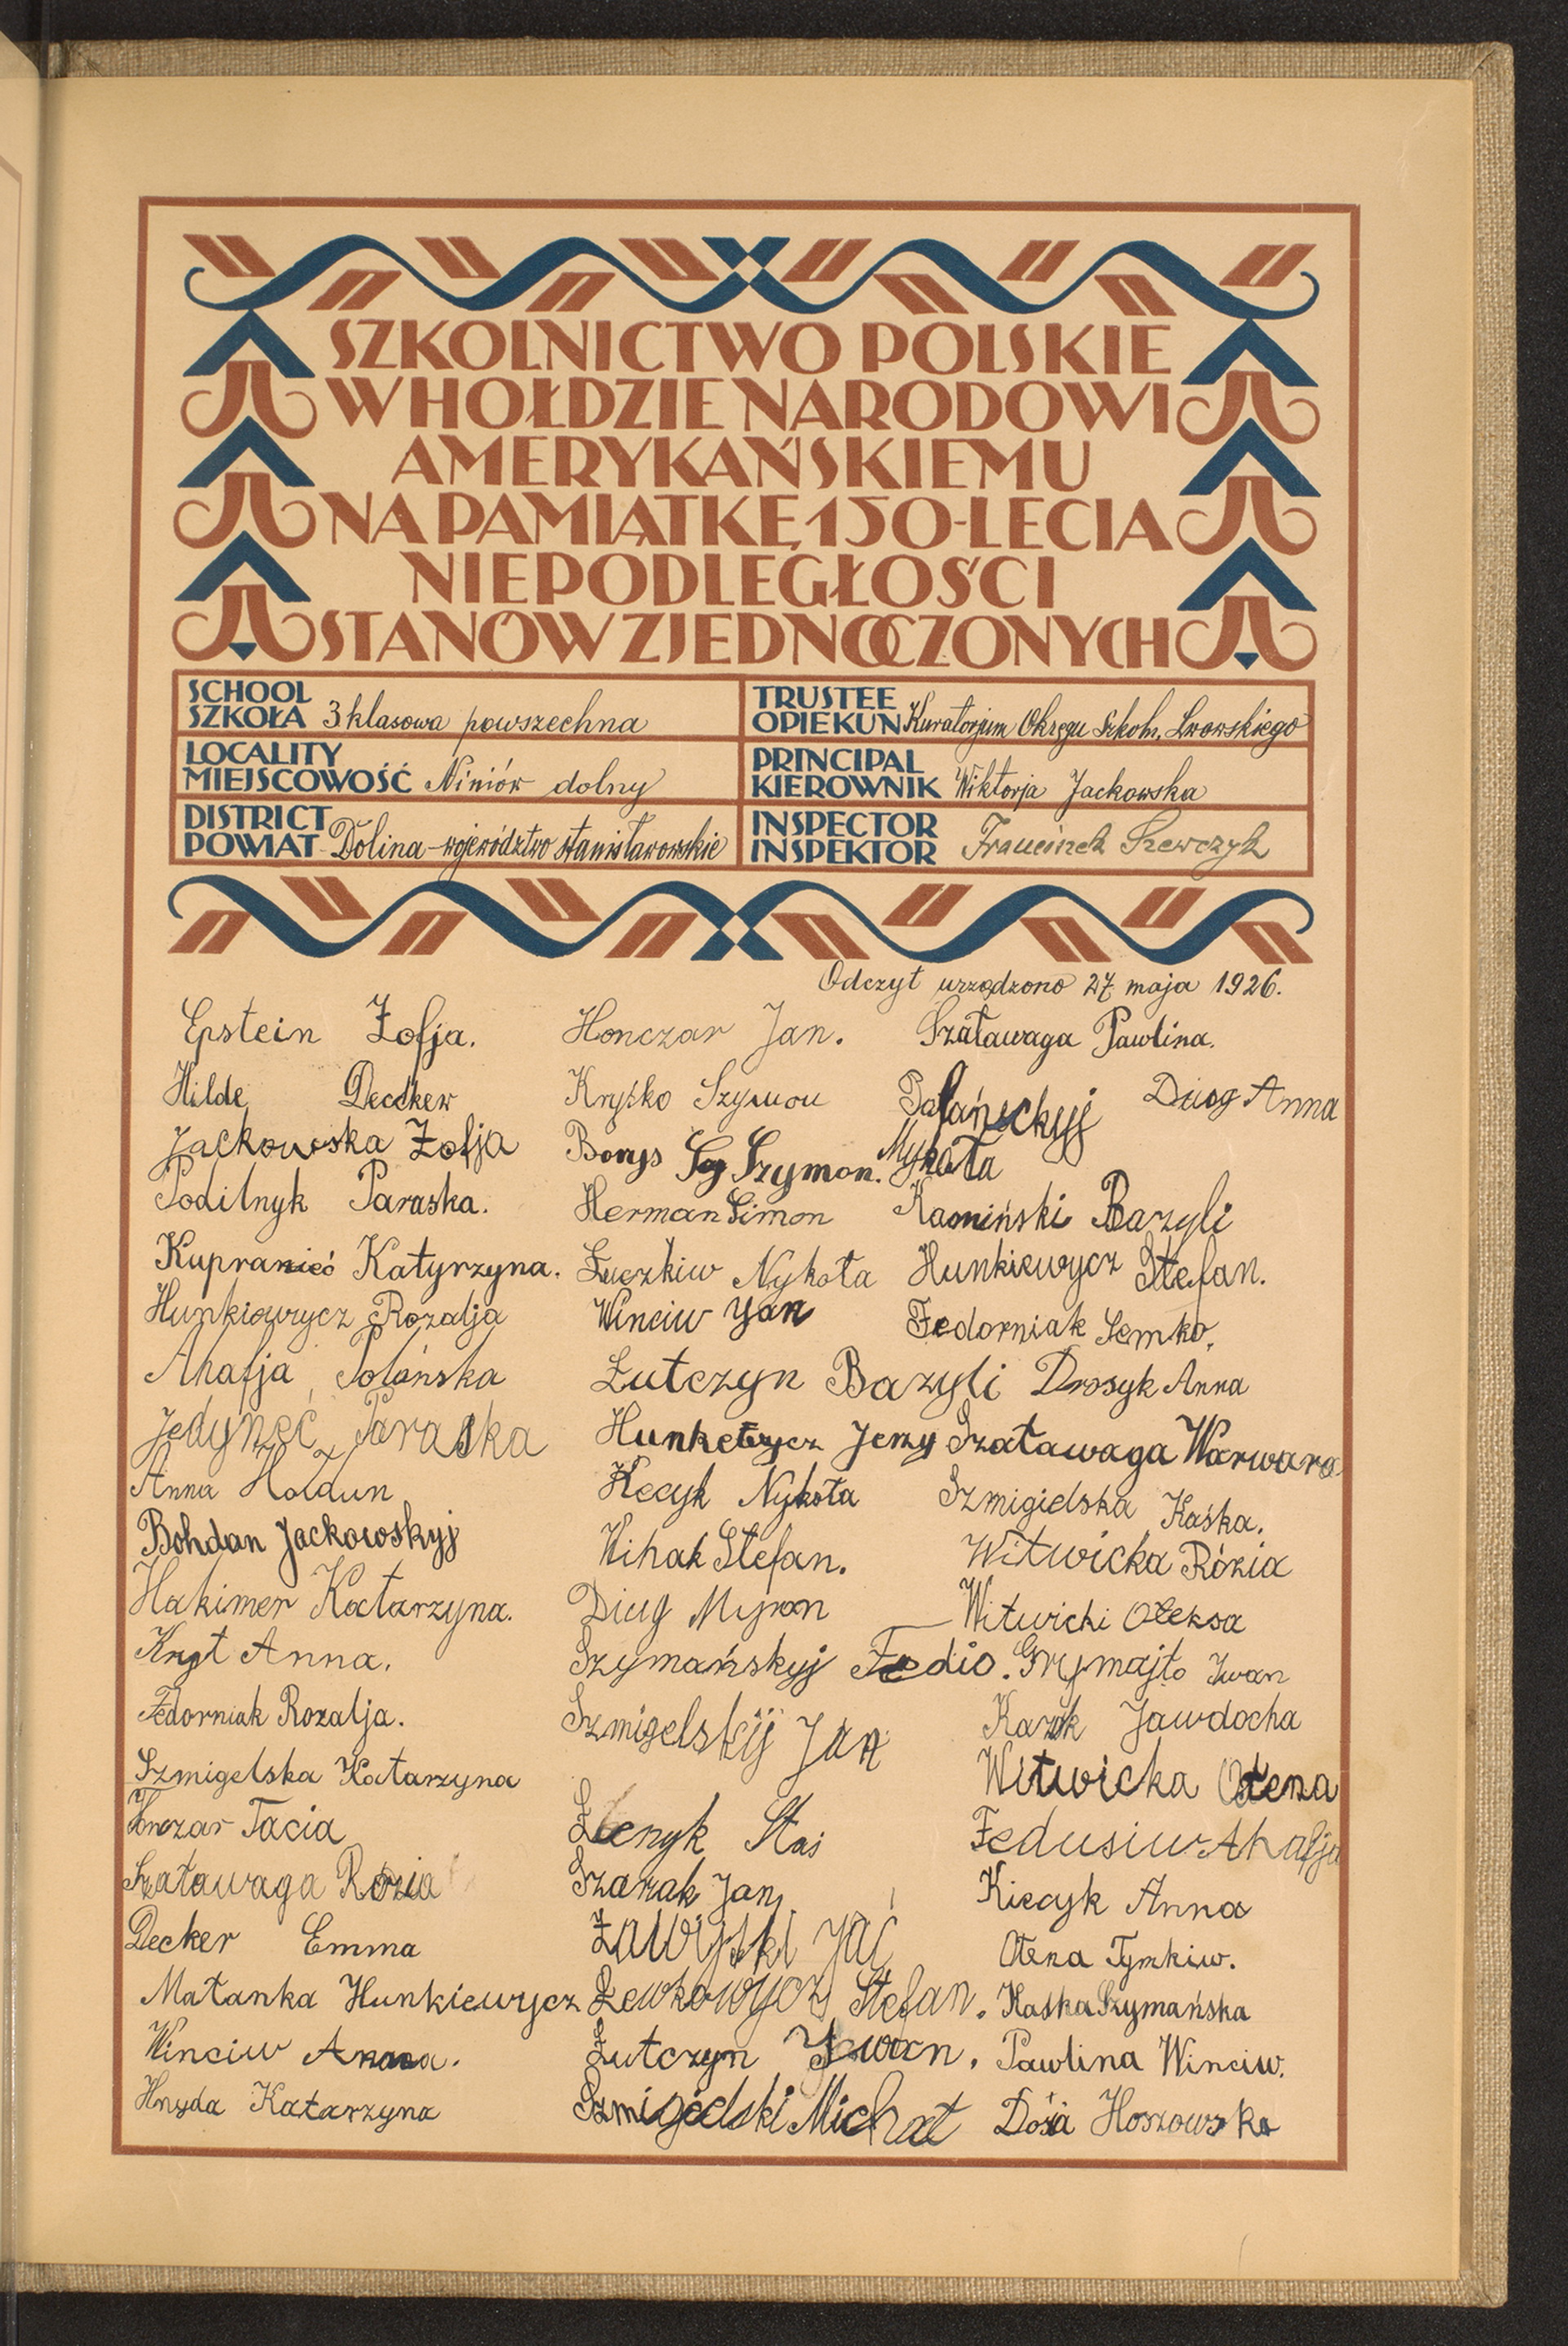 SZKOLNICTWO POLSKIE
W HOŁDZIE NARODOWI
AMERYKAŃSKIEMU
NA PAMIĄTKĘ 150-LECIA
NIEPODLEGŁOŚCI
STANÓW ZJEDNOCZONYCH
SCHOOL
SZKOŁA 3 klasowa powszechna
TRUSTEE
OPIEKUN Kuratorjum Okręgu Szkoln. Lwowskiego
LOCALITY
MIEJSCOWOŚĆ Niniów dolny
PRINCIPAL
KIEROWNIK Wiktorja Jackowska
DISTRICT
POWIAT Dolina - województwo stanisławowskie
INSPECTOR
INSPEKTOR Franciszek Szewczyk
Odczyt urządzono 27 maja 1926.
Epstein Zofja.
Hilde Decker
Jackowska Zofja
Podilnyk Paraska.
Kupranieć Katyrzyna.
Hunkiewycz Rozalja
Ahafja Polańska
Jedyneć Paraska
Anna Hołdun
Bohdan Jackowskyj
Hakimer Katarzyna.
Kryt Anna.
Fedorniak Rozalja.
Szmigelska Katarzyna
Honczar Tacia
Szaławaga Rózia
Decker Emma
Małanka Hunkiewycz
Winciw Anna.
Hnyda Katarzyna
Honczar Jan.
Kryśko Szymon
Borys Szymon.
Herman Simon
Łuczkiw Nykoła
Winciw Yan
Łutczyn Bazyli
Hunkewycz Jerzy
Kecyk Nykoła
Wihak Stefan.
Diug Myron
Szymańskyj Fedio.
Szmigelskij Jan
Łenyk Staś
Szarak Jan
Zawijski Jać
Łewkowycz Stefan.
Łutczyn Iwan.
Szmigedski Michał
Szaławaga Pawlina.
Palańeckyj Mykoła
Diug Anna
Kamiński Bazyli
Hunkiewycz Stefan.
Fedorniak Semko.
Drosyk Anna
Szaławaga Warwara
Szmigielska Kaśka.
Witwicka Rózia
Witwicki Ołeksa
Grymajło Iwan
Kazuk Jawdocha
Witwicka Ołena
Fedusiw Ahafja
Kiecyk Anna
Ołena Tymkiw.
Kaśka Szymańska
Pawlina Winciw.
Dosia Hoszowska